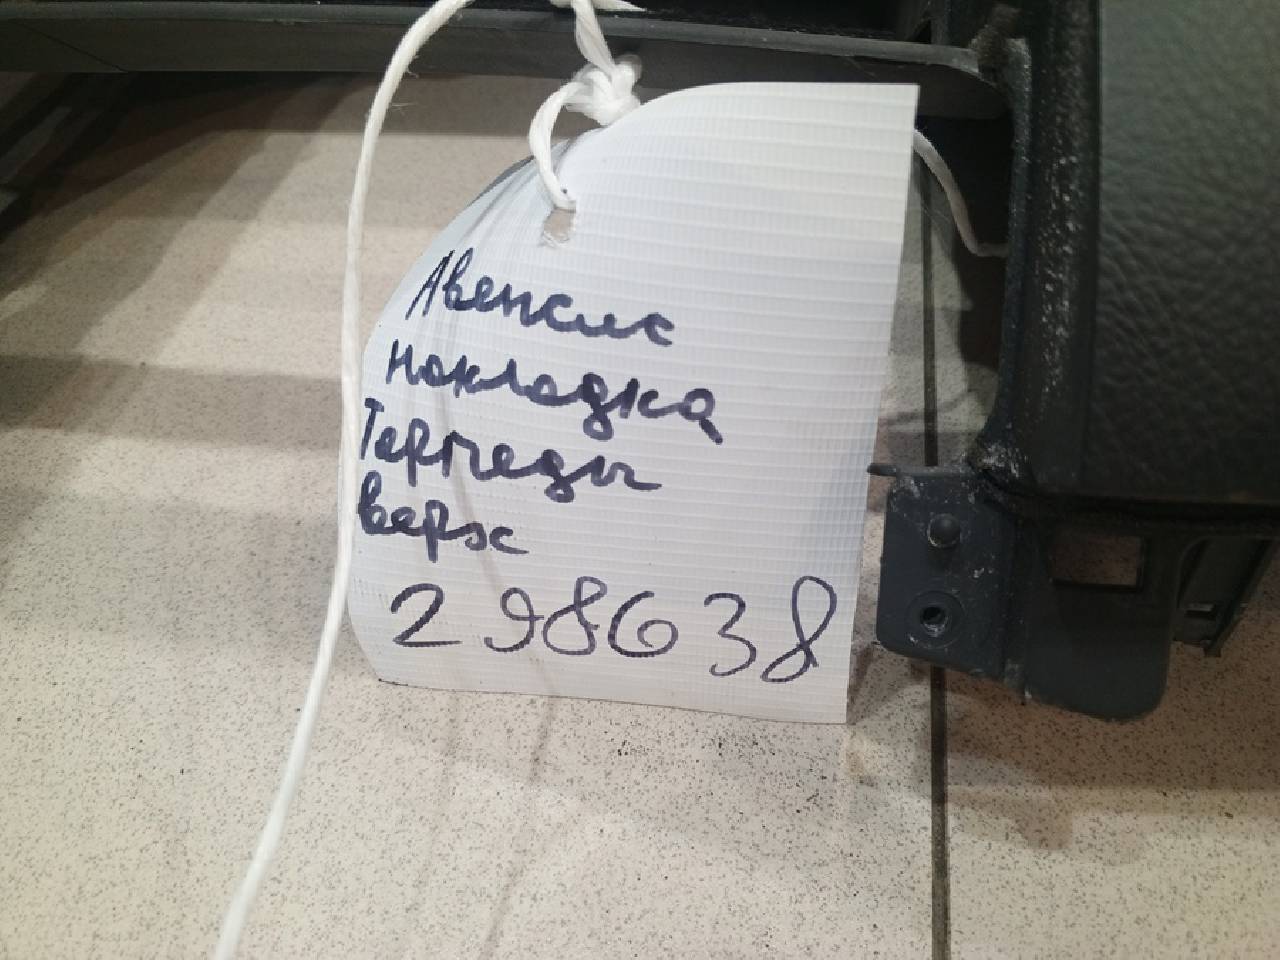 Авенсис
накладка
Торпеды
верх
298638